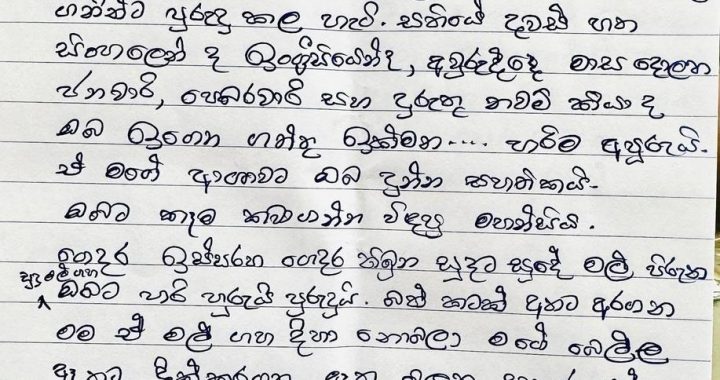 ගන්නට පුරුදු කල හැටි. සතියේ දවස් හත
සිංහලෙන් ද ඉංග්‍රීසියෙන්ද, අවුරුද්දෙ මාස දොලහ
ජනවාරි, පෙබරවාරි සහ දුරුතු නවම් කියා ද
ඔබ ඉගෙන ගත්තු ඉක්මන.... හරිම අපූරුයි.
ඒ මගේ ආශාවට ඔබ දුන්න සහතිකයි.
ඔබට කෑම කවාගන්න විඳපු මහන්සිය.
ගෙදර ඉස්සරහ ගෙදර තිබුන සුදට සුදේ මල් පිරුන
මල් ගහ
ඔබට හරි හුරුයි පුරුදුයි. බත් කටක් අතට අරගන
මම ඒ මල් ගහ දිහා නොබලා මගේ බෙල්ල